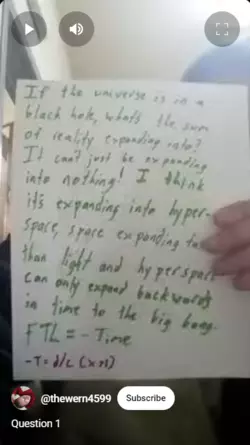 If the universe is in a
black hole, what's the sum
of reality expanding into?
It can't just be expanding
into nothing! I think
it's expanding into hyper-
space, space expanding
than light and hyperspace
can only expand backwards
in time to the big bang.
FTL = - Time
-T = d/c (x
@thewern4599
Subscribe
Question 1